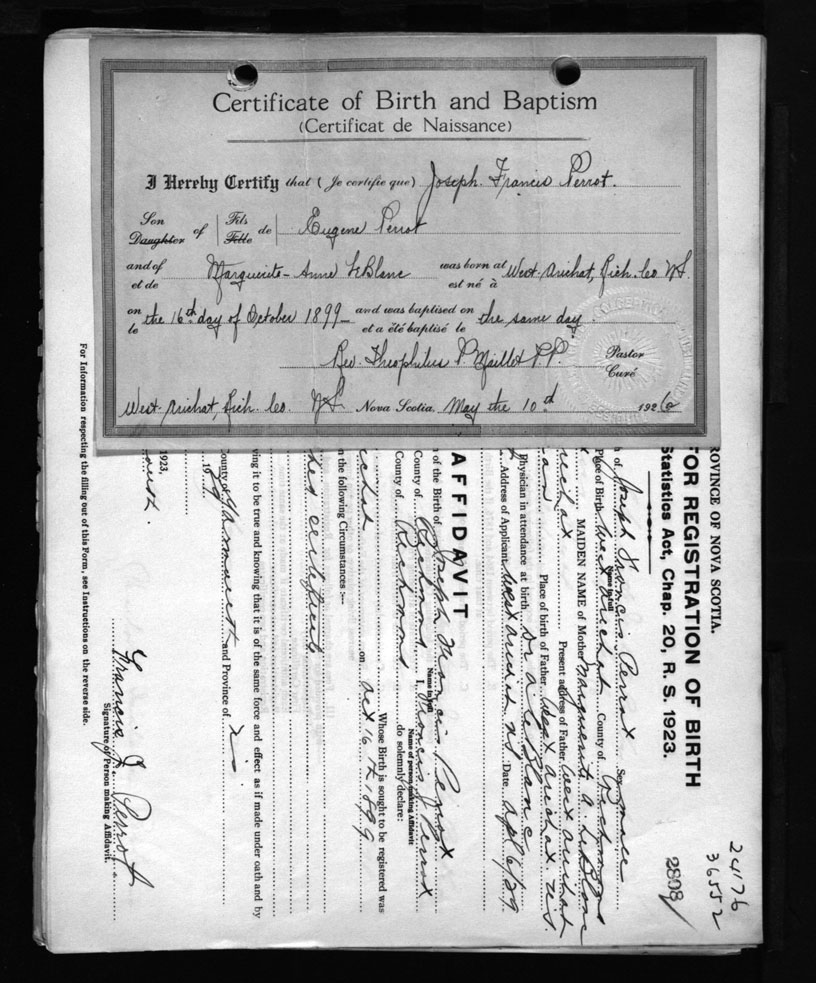 Certificate of Birth and Baptism
(Certificat de Naissance)
I Hereby Certify that (Je certifie que) Joseph. Francis Perrot.
Son Daughter of Fils Fille de Eugene Perrot
and of et de Marguerite-Anne LeBlanc was born at est né à West Arichat, Rich. Co. N.S.
on le the 16th day of October 1899 and was baptised on et a été baptisé le the same day.
Rev. Theophilus P. Maillet P.P. Pastor Curé
West Arichat, Rich. Co. N.S. Nova Scotia, May the 10d 1926
24176
36552
2808
ROVINCE OF NOVA SCOTIA.
FOR REGISTRATION OF BIRTH
Statistics Act, Chap. 20, R. S. 1923.
h of Joseph Francis Perrot Sex male
Name in full
Place of Birth West Arichat County of Richmond
MAIDEN NAME of Mother Marguerite A. LeBlanc
uchat Present address of Father West Arichat
an Place of birth of Father West Arichat N.S.
Physician in attendance at birth Dr a LeBlanc
Address of Applicant West Arichat NS Date apl 6/29
AFFIDAVIT
n of the Birth of Joseph Francis Perrot
Name in full
County of Richmond I, Francis J Perrot
Name of person making Affidavit
County of Richmond do solemnly declare:
Whose Birth is sought to be registered was
ichat on Oct 16th 1899
n the following Circumstances :—
certificate
ving it to be true and knowing that it is of the same force and effect as if made under oath and by
1923,
County of Yarmouth and Province of
19 29
Francis J. Perrot
Signature of Person making Affidavit.
For Information respecting the filling out of this Form, see Instructions on the reverse side.